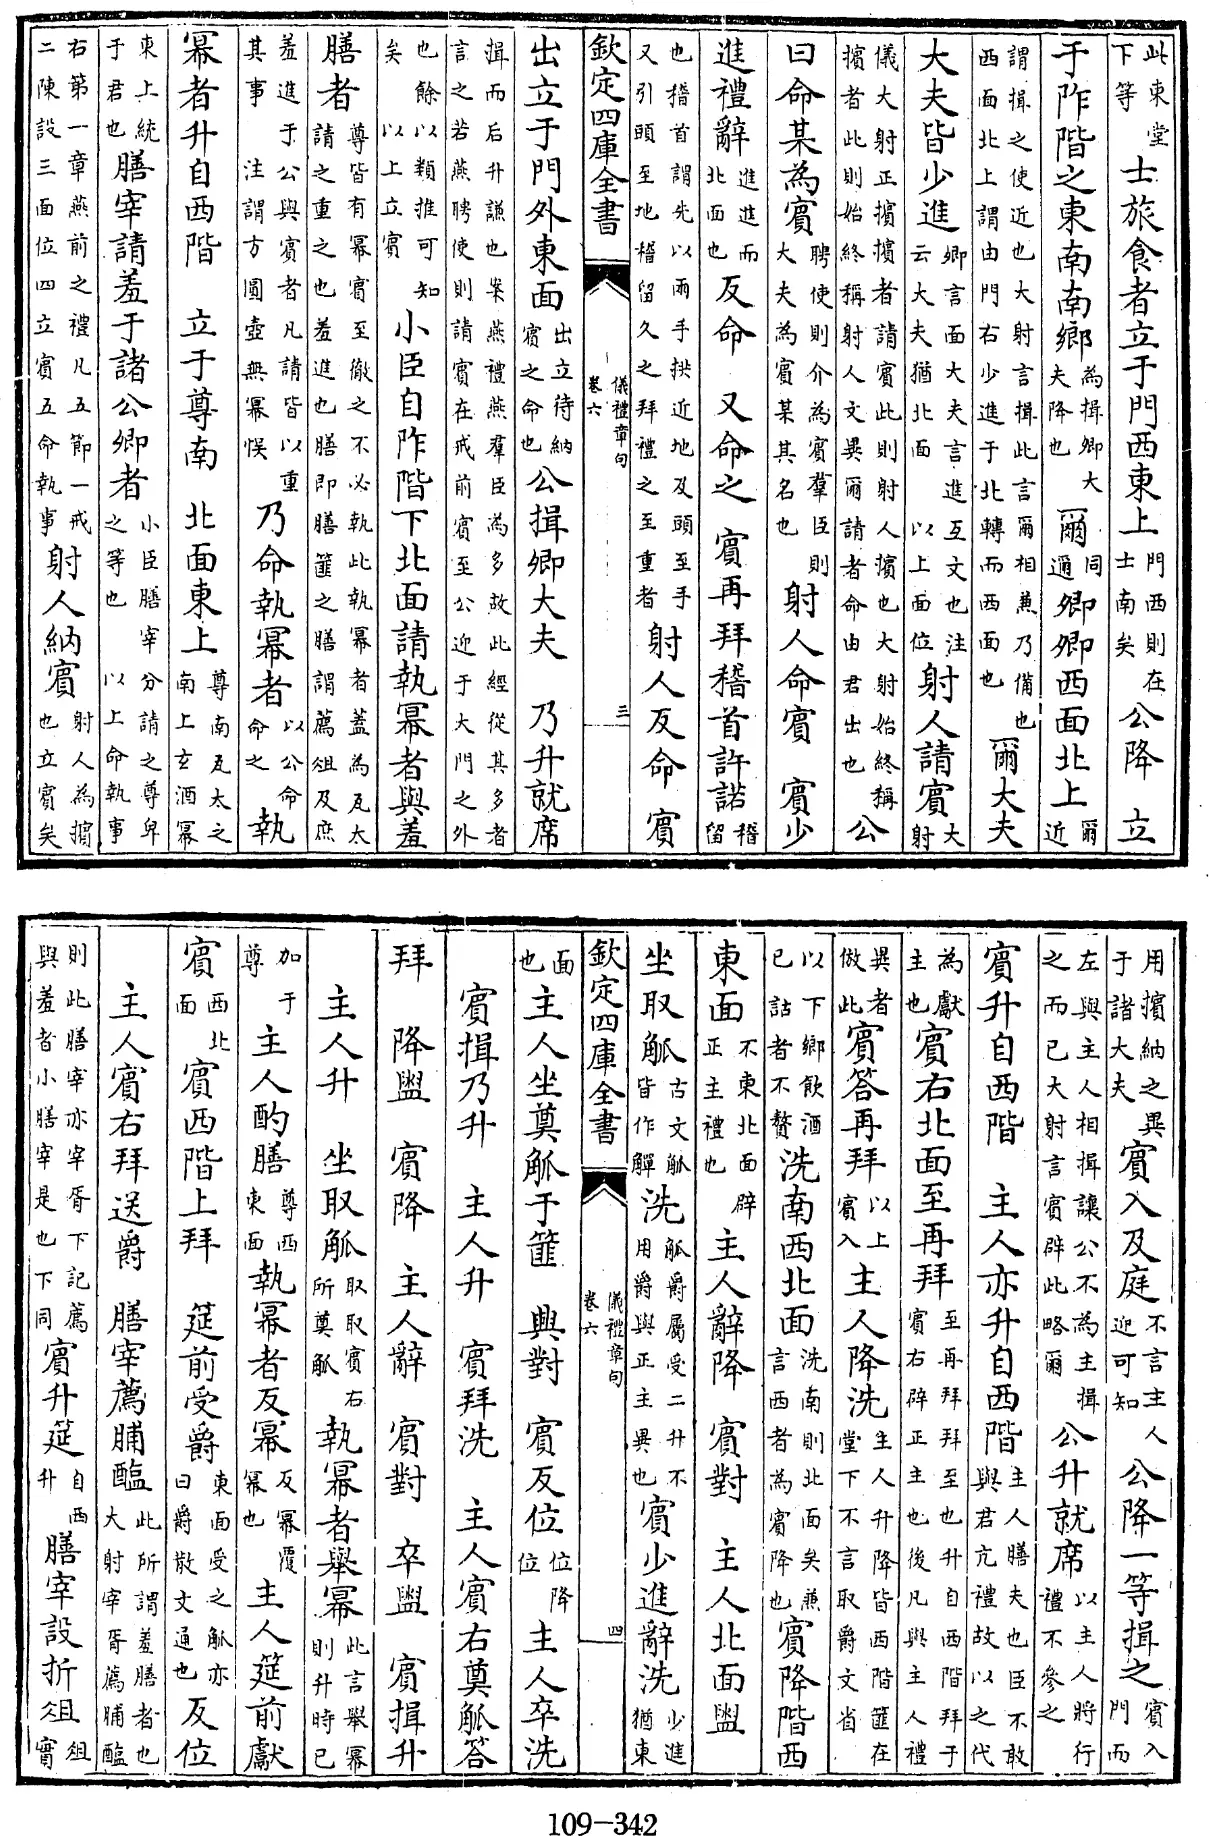 此東堂下等 士旅食者立于門西東上 門西則在士南矣 公降 立
于阼階之東南南鄉 為揖卿大夫降也 爾 同邇 卿卿西面北上 爾近
謂揖之使近也大射言揖此言爾相兼乃備也西面北上謂由門右少進于北轉而西面也 爾大夫
大夫皆少進 卿言面大夫言進互文也注云大夫猶北面 以上面位 射人請賓 大射
儀大射正擯擯者請賓此則射人擯也大射始終稱擯者此則始終稱射人文異爾請者命由君出也 公
曰命某為賓 聘使則介為賓羣臣則大夫為賓某其名也 射人命賓 賓少
進禮辭 進進而北面也 反命 又命之 賓再拜稽首許諾 稽留
也稽首謂先以兩手拱近地及頭至手又引頭至地稽留久之拜禮之至重者 射人反命 賓
欽定四庫全書 儀禮章句 卷六 三
出立于門外東面 出立待納賓之命也 公揖卿大夫 乃升就席
揖而后升謙也案燕禮燕羣臣為多故此經從其多者言之若燕聘使則請賓在戒前賓至公迎于大門之外
也餘以類推可知矣 以上立賓 小臣自阼階下北面請執冪者與羞
膳者 尊皆有冪賓至徹之不必執此執冪者蓋為瓦太請之重之也羞進也膳即膳篚之膳謂薦俎及庶
羞進于公與賓者凡請皆以重其事 注謂方圓壺無冪悮 乃命執冪者 以公命命之 執
冪者升自西階 立于尊南 北面東上 尊南瓦太之南上玄酒冪
東上統于君也 膳宰請羞于諸公卿者 小臣膳宰分請之尊卑之等也 以上命執事
右第一章燕前之禮凡五節一戒二陳設三面位四立賓五命執事 射人納賓 射人為擯也立賓矣
用擯納之異于諸大夫 賓入及庭 不言主人迎可知 公降一等揖之 賓入門而
左與主人相揖讓公不為主揖之而已大射言賓辟此略爾 公升就席 以主人將行禮不參之
賓升自西階 主人亦升自西階 主人膳夫也臣不敢與君亢禮故以之代
為獻主也 賓右北面至再拜 至再拜拜至也升自西階拜于賓右辟正主也後凡與主人禮
異者倣此 賓答再拜 以上賓入 主人降洗 主人升降皆西階篚在堂下不言取爵文省
以下鄉飲酒已詁者不贅 洗南西北面 洗南則北面矣兼言西者為賓降也 賓降階西
東面 不東北面辟正主禮也 主人辭降 賓對 主人北面盥
坐取觚 古文觚皆作觶 洗 觚爵屬受二升不用爵與正主異也 賓少進辭洗 少進猶東
欽定四庫全書 儀禮章句 卷六 四
面也 主人坐奠觚于篚 興對 賓反位 位降位 主人卒洗
賓揖乃升 主人升 賓拜洗 主人賓右奠觚答
拜 降盥 賓降 主人辭 賓對 卒盥 賓揖升
主人升 坐取觚 取取賓右所奠觚 執冪者舉冪 此言舉冪則升時已
加于尊 主人酌膳 尊西東面 執冪者反冪 反冪覆冪也 主人筵前獻
賓 西北面 賓西階上拜 筵前受爵 東面受之觚亦曰爵散文通也 反位
主人賓右拜送爵 膳宰薦脯醢 此所謂羞膳者也大射宰胥薦脯醢
則此膳宰亦宰胥下記薦俎與羞者小膳宰是也下同 賓升筵 自西升 膳宰設折俎 俎實
109-342